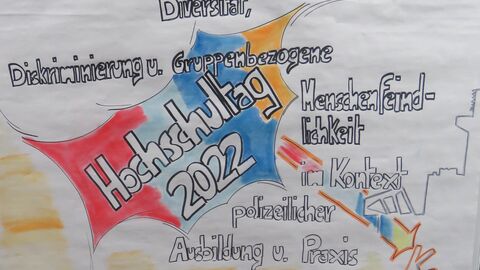 Diversität,
Diskriminierung u. Gruppenbezogene
Menschenfeind-
lichkeit
Hochschultag
2022
im Kontext
polizeilicher
Ausbildung u. Praxis